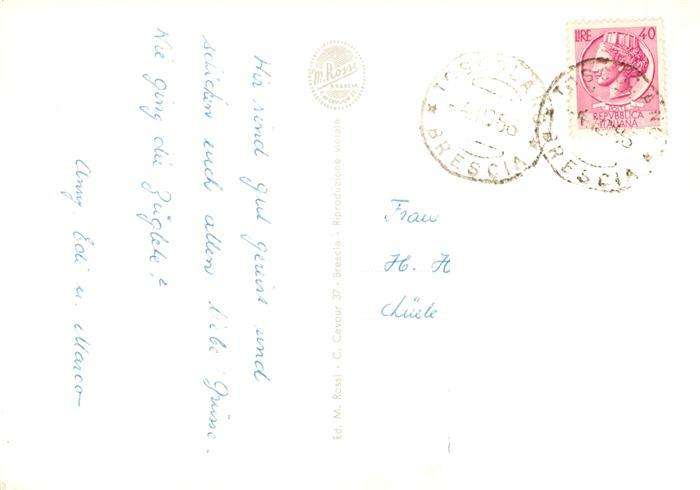 Wir sind gut gereist und
schicken euch allen liebe Grüsse.
Wie ging die Züglete?
Anny, Edi u. Marco
M. Rossi
BRESCIA
Ed. M. Rossi - C. Cavour 37 - Brescia - Riproduzione vietata
TOSCOLA
BRESCIA
LIRE 40
REPVBBLICA
ITALIANA
BRESCIA
Frau
H. H